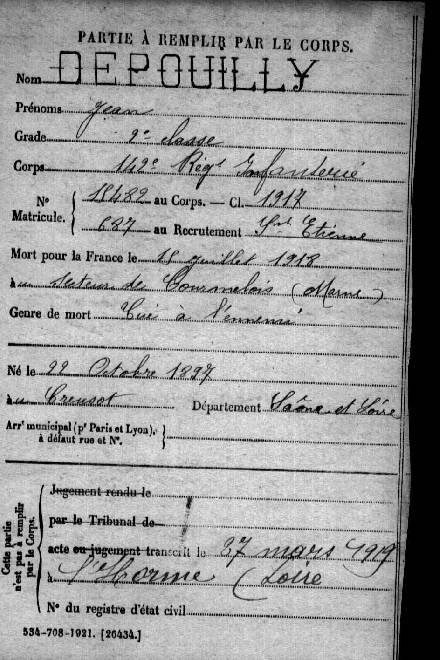 PARTIE À REMPLIR PAR LE CORPS.
Nom DEPOUILLY
Prénoms Jean
Grade 2e classe
Corps 142e Régt Infanterie
No Matricule. 18482 au Corps. — Cl. 1917
687 au Recrutement St Etienne
Mort pour la France le 15 juillet 1918
à secteur de Courmelois (Marne)
Genre de mort Tué à l'ennemi
Né le 22 Octobre 1897
au Creusot Département Saône et Loire
Arrt municipal (pr Paris et Lyon), à défaut rue et No.
Cette partie n'est pas à remplir par le Corps.
Jugement rendu le
par le Tribunal de
acte ou jugement transcrit le 27 mars 1919
à L'Horme (Loire
No du registre d'état civil
534-708-1921. [26434.]